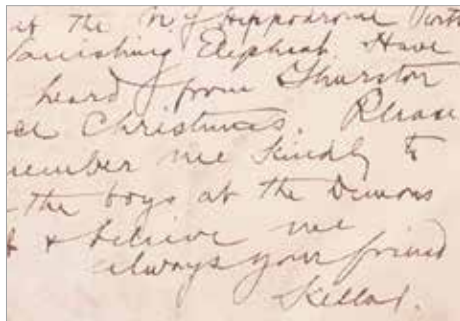 at the N Y Hippodrome with
Vanishing Elephant Have
heard from Thurston
Christmas. Please
remember me kindly to
the boys at the Demons
& believe me
always your friend
Kellar.